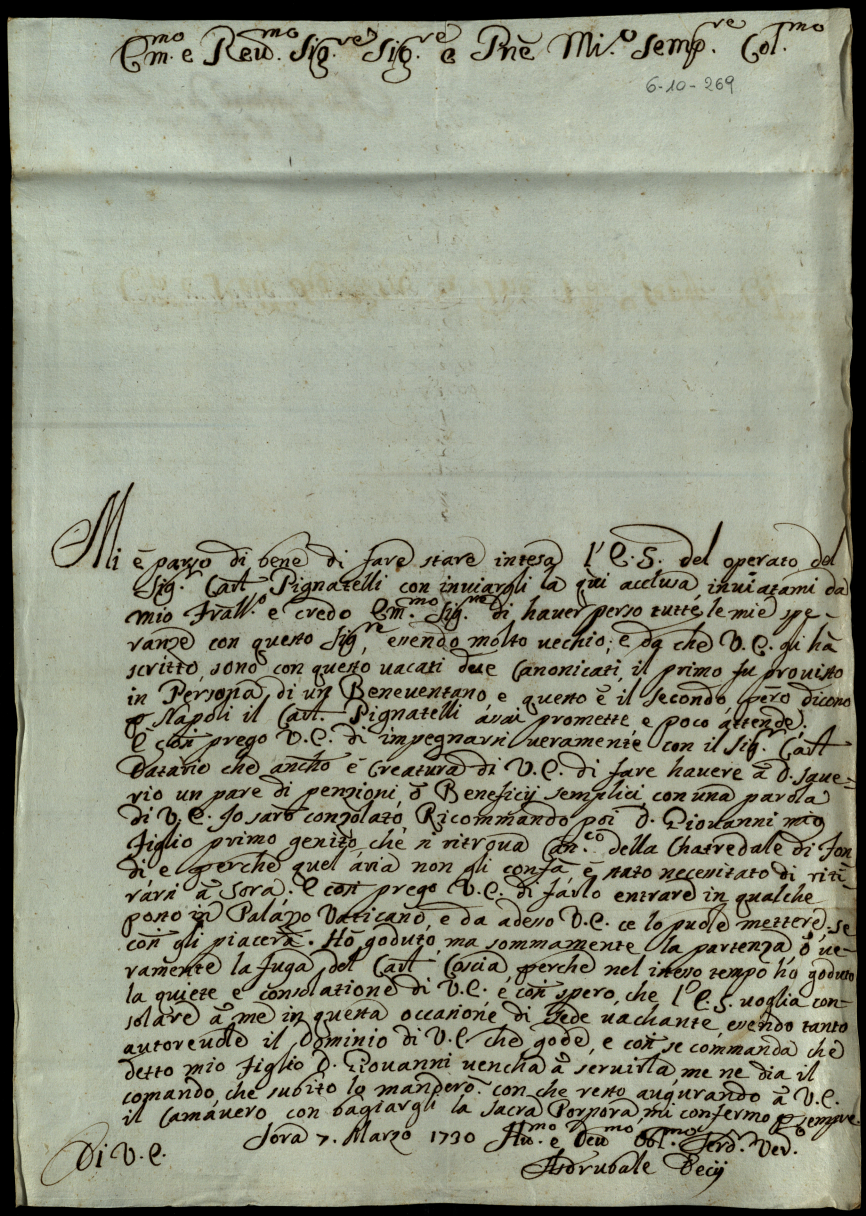 Em.mo e Reud.mo Sig.re Sig.re e Pne Mi.o Semp.re Col.mo
6-10-269
Mi è parso di bene di fare stare intesa l'E.S. del operato del
Sig.r Card Pignatelli con inuiargli la qui acclusa inuiatami da
mio Frall.o e credo Em.mo Sig.re di hauer perso tutte le mie spe-
ranze con questo Sig.re, essendo molto uechio; e da che V.E. gi hà
scritto, sono con questo uacati due Canonicati, il primo fu prouisto
in Persona di un Beneuentano e questo è il secondo, però dicono
p Napoli il Card. Pignatelli assai promette, e poco attende.
E così prego V.E. di impegnarsi ueramente con il Sig.r Card
Datario che ancho è Creatura di V.E. di fare hauere à D. Saue-
rio un pare di penzioni, ò Beneficij semplici con una parola
di V.E. Io sarò conzolato, Ricommando poi D. Giouanni mio
Figlio primo genito che si ritroua Can.co della Chatredale di Fon-
di e perche quel ària non gli confà è stato necessitato di riti-
rarsi à Sora. E così prego V.E. di farlo entrare in qualche
posto in Palazzo Vaticano, e da adesso V.E. ce lo puole mettere, se
così gli piacerà. Hò goduto, ma sommamente la partenza, ò ue-
ramente la fuga del Card Coscia, perche nel istesso tempo hò goduto
la quiete e consolatione di V.E. e così spero, che l'E.S. uoglia con-
solare à me in questa occasione di Sede uachante, essendo tanto
autoreuole il Dominio di V.E. che gode, e così se commanda che
detto mio Figlio D. Giouanni uencha à seruirla, me ne dia il
comando, che subito lo manderò. con che resto augurando à V.E.
il Camauero con bagiargli la sacra Porpora, mi confermo p sempre
Di V.E. Sora 7. Marzo 1730 Hu.mo e Deu.mo Obl.mo Serd.r Ver.o
Asdrubale Decij